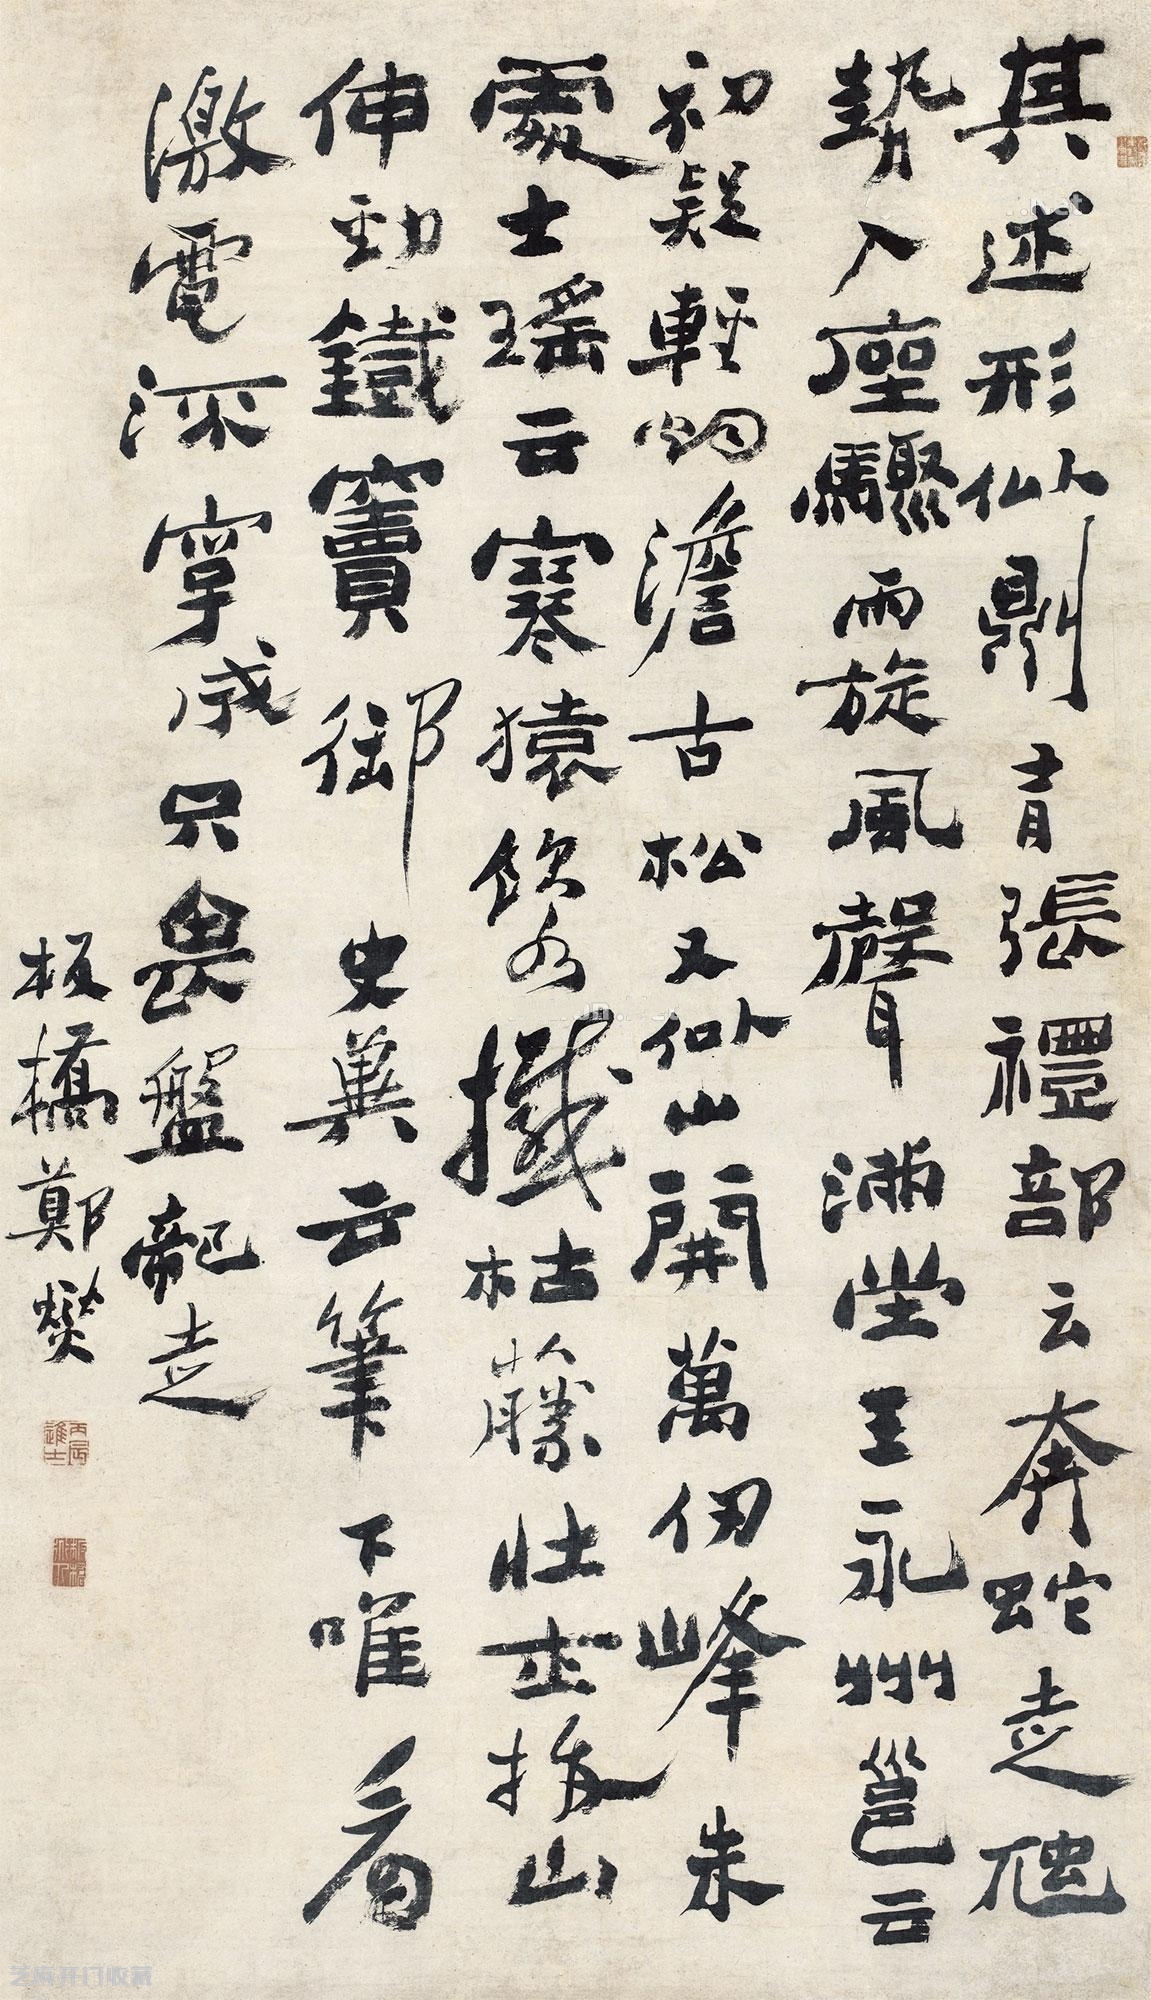 其述形似則有張禮部云奔蛇走虺
勢入座驟雨旋風聲滿堂王永州邕云
初疑輕煙澹古松又似山開萬仞峰朱
處士瑤云寒猿飲水撼枯藤壯士拔山
伸勁鐵竇御史冀云筆下唯看
激電流字成只畏盤龍走
板橋鄭燮
丙辰進士
芝麻开门收藏